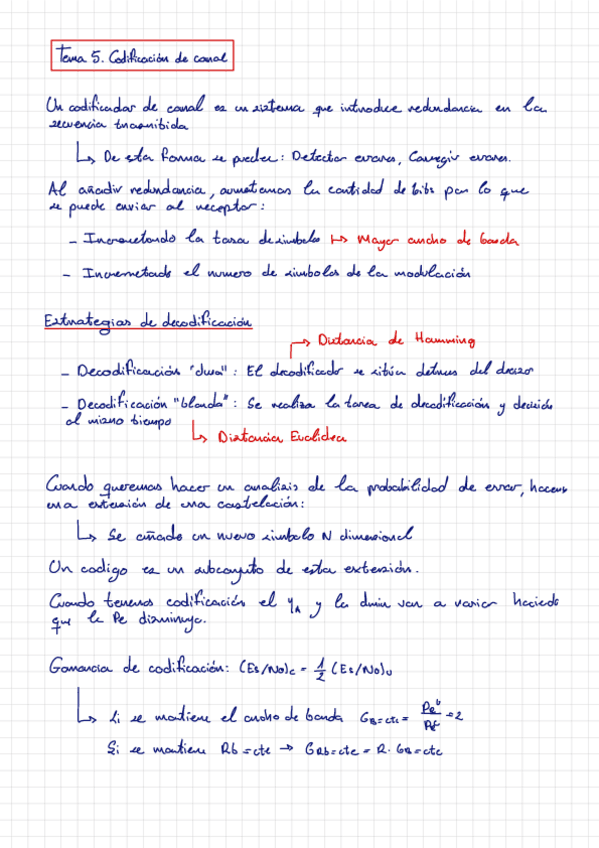 Tema 5. Codificación de canal
Un codificador de canal es un sistema que introduce redundancia en la
secuencia transmitida
↳ De esta forma se puede: Detectar errores, Corregir errores.
Al añadir redundancia, aumentamos la cantidad de bits por lo que
se puede enviar al receptor:
- Incrementando la tasa de simbolo ↦ Mayor ancho de banda
- Incrementado el numero de simbolos de la modulación
Estrategias de decodificación
→ Distancia de Hamming
- Decodificación "dura": El decodificador se sitúa detras del decisor
- Decodificación "blanda": Se realiza la tarea de decodificación y decisión
al mismo tiempo
↳ Distancia Euclidea
Cuando queremos hacer un analisis de la probabilidad de error, hacemos
una extensión de una constelación:
↳ Se añade un nuevo simbolo N dimensional
Un codigo es un subconjunto de esta extensión.
Cuando tenemos codificación el y la dmin van a variar haciendo
que la Pe disminuya.
Ganancia de codificación: (Es/No)c = 1/2 (Es/No)u
↳ Si se mantiene el ancho de banda G_B=cte = = 2
Si se mantiene Rb = cte → G_Rb=cte = R · G_B=cte